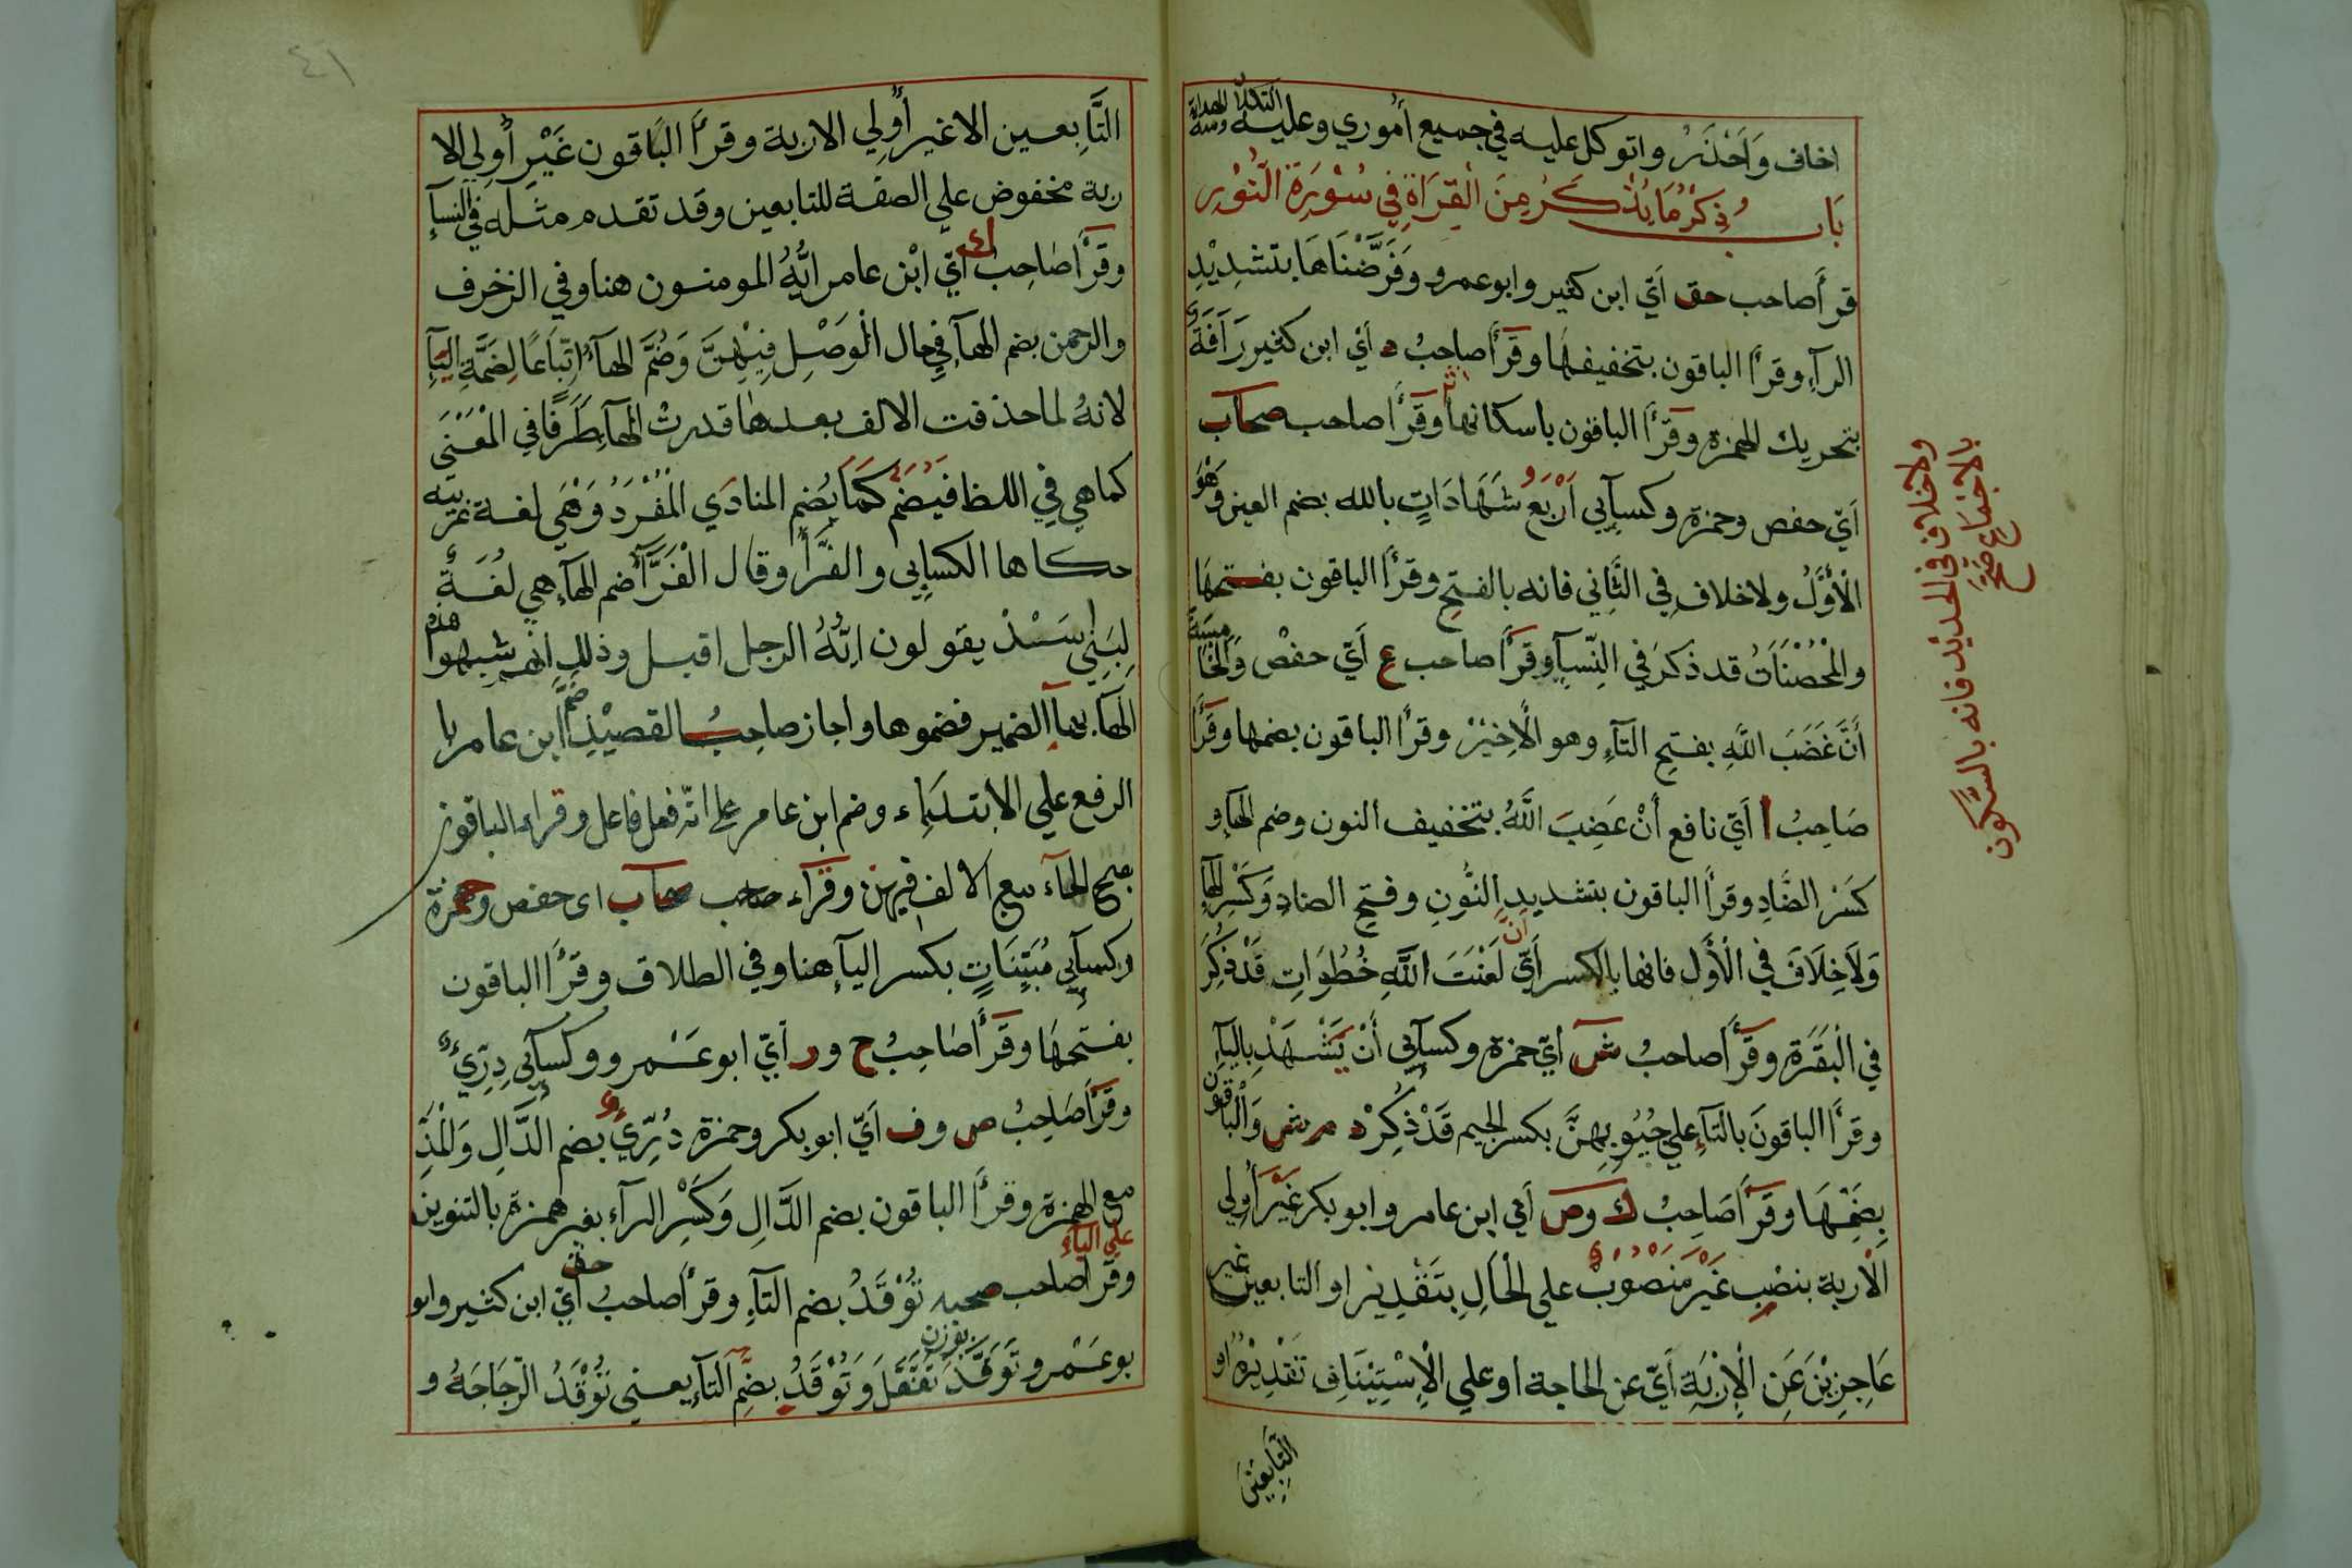 اخاف وَاَحْذَرُ واتوكل عليه في جميع أموري وعليه التكلان
بَاب ذِكْرُ مَا يُذْكَرُ مِنَ الْقِرَاةِ فِي سُوْرَةِ النُّوْرِ
قرأ صاحب حق اَيّ ابن كثير وابوعمرو وَفَرَّضْنَاهَا بتشدِيْدِ
الرآءِ وقرأ الباقون بتخفيفها وقرأ صاحبُ د اَيْ ابن كثير رَآفَةٌ
بتحريك الهمزة وقرأ الباقون باسكانها وقرأ صاحب صحاب
اَيّ حفص وحمزة وكسآيي اَرْبَعُ شَهَادَاتٍ بالله بضم العين وَهْوَ
الْاَوَّلُ ولاخلاف فِي الثَّانِي فانه بالفتح وقرأ الباقون بفتحها
والْمُحْصَنَاتُ قد ذكرَ في النِّسآءِ وقرأ صاحب ع اَيّ حفصْ وَالْخَامِسَةَ
أَنَّ غَضَبَ اللَّهِ بفتحِ التآءِ وهو الْاَخِيْرْ وقرأ الباقون بضمها وقَرَأَ
صَاحِبُ ا اَيّ نافع أَنْ غَضِبَ اللَّهُ بتخفيف النون وضم الهآءِ و
كَسْرَ الضَّادِ وقرأ الباقون بتشديدِ النُّونِ وفتحِ الضادِ وَكَسْرِ الهآءِ
وَلَاخِلَافَ فِي الْاَوَّلِ فانها بالكسر اَيّ اَنَّ لَعْنَتَ اللَّهِ خُطُوَاتِ قَدْ ذُكِرَ
فِي الْبَقَرَةِ وقَرَأَ صاحبُ ش اَيّ حمزة وكسآيي أَنْ يَشْهَدْ بِاليآءِ
وقرأ الباقونَ بالتآءِ علي جُيُوبِهِنَّ بكسر الجيم قَدْ ذُكِرْ د م ش وَالْبَاقون
بِضَمِّهَا وقَرَأَ صَاحِبُ ك وص اَيْ ابن عامر وابو بكر غَيْرَ أُولِي
الْاربة بنصْبِ غَيْرَ مَنْصُوبٌ علي الْحَالِ بِتَقْدِيْرِ او التابعين غير
عَاجِزِيْنَ عَنِ الْاِرْبَةِ اَيّ عن الحاجة او علي الْاِسْتِيْنَافِ تَقْدِيْرُهُ او
التَّابِعِيْنَ
ولاخلاف في الحديد فانه بالسَّكون
بالاجماع صَحَّ
٤١
التَّابِعين الا غير أُولِي الاربة وقرأ الباقون غَيْرِ أُولِي الا
ربة مخفوض علي الصفة للتابعين وقد تقدم مثله في النسآء
وقرأ صَاحِبُ ك اَيّ ابْن عامر اَيُّهُ المومنون هنا وفي الزخرف
والرحمن بضم الهآءِ فِي حال الْوَصْلِ فِيْهِنَّ وَضُمَّ الهآءُ اتِّبَاعًا لِضَمَّةِ اليَآءِ
لانهُ لما حذفت الالف بعدها قدرتْ الهآءِ طَرَفًا في الْمَعْنَي
كما هي فِي اللفظ فَيُضَمُّ كَمَا يُضم المنادَي الْمُفْرَدُ وَهْيَ لغة عربيّه
حكاها الكسايي والفرَّآءُ وقال الْفَرَّآءُ ضم الهآءِ هِي لُغَةٌ
لِبَنِي اَسَدْ يقولون ايُّهُ الرجل اقبل وذلك انهم شبهوا هذه
الهآءَ بهآءِ الضمير فضموها واجاز صاحِبُ القصيْدِ ضَمَّ ابن عامر با
الرفع علي الابتدآء وضم ابن عامر علي انّه فعل فاعل وقرآء الباقون
بفتح الهآء مع الالف فيهن وقرآء صاحب صحاب اي حفص وحمزة
وكسآيي مُبَيِّنَاتٍ بكسر اليآءِ هنا وفي الطلاق وقرأ الباقون
بفتحهَا وقَرَأَ صَاحِبُ ح ور اَيّ ابو عَمْرو وكسآيي دِرِّيْءٌ
وقَرَأَ صَاحِبُ ص وف اَيّ ابو بكر وحمزة دُرِّيْءٌ بضم الدَّالِ وَالْمَدِّ
مع الهمزة وقرأ الباقون بضم الدَّالِ وَكَسْرِ الرآءِ بغير همزة بالتنوين
علي اليآءِ
وقرأ صاحب صحبه تُوْقَدُ بضم التآءِ وقرأ صاحبُ حق اَيّ ابن كثير وابو
بوعَمْرو تَوَقَّدَ بوزن تَفَعَّلَ وَتُوْقَدُ بضمِّ التآءِ يعني تُوْقَدُ الزّجَاجَةُ و